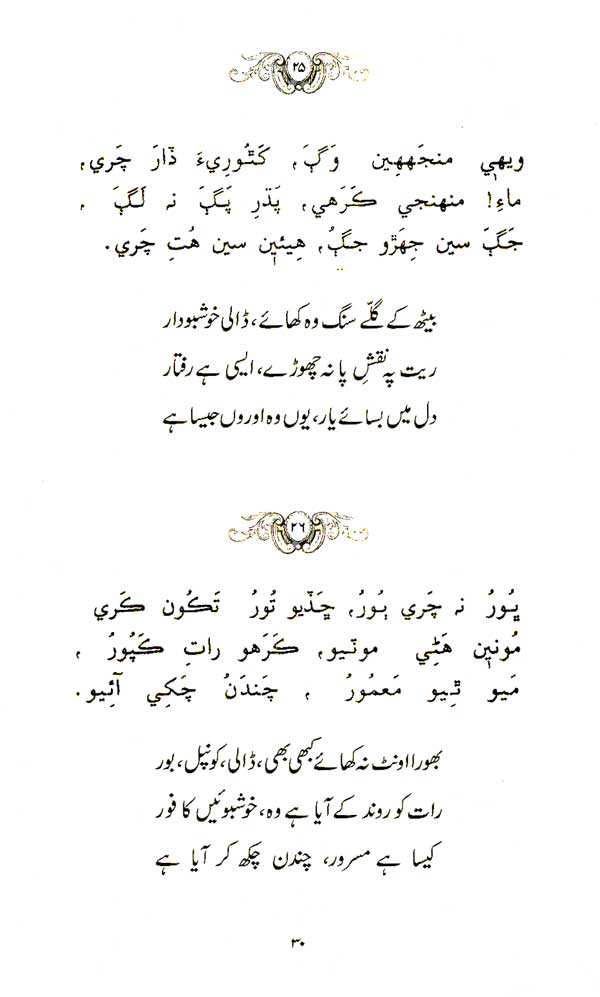 ۲۵
ويھي منجَهِين وَڳَ، کَٿُورِيءَ ڏارَ چَري،
ماءِ! منهنجي ڪَرَهي، پَڌرِ پَڳَ نہ لَڳَ ،
جَڳَ سين جِهَڙو جڳُ، هِيئين سين هُتِ چَري.
بیٹھ کے گلّے سنگ وہ کھائے، ڈالی خوشبودار
ریت پہ نقشِ پا نہ چھوڑے، ایسی ہے رفتار
دل میں بسائے یار، یوں وہ اوروں جیسا ہے
۲۶
ڀُورُ نہ چَري ٻُورُ، ڇَڏيو تُورُ تَڪُون ڪَري
مُونِين هَڻِي موٽيو، ڪَرَهو راتِ ڪَپُورُ ،
مَيو ٿِيو مَعمُورُ ، چَندَنُ چَکِي آئِيو.
بھورا اونٹ نہ کھائے کبھی بھی، ڈالی، کونپل، بور
رات کو روند کے آیا ہے وہ، خوشبوئیں کافور
کیسا ہے مسرور، چندن چکھ کر آیا ہے
۳۰